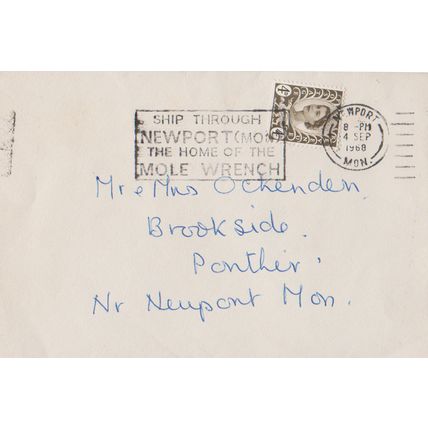 SHIP THROUGH
NEWPORT (MON)
THE HOME OF THE
MOLE WRENCH
4D
NEWPORT
8 - PM
4 SEP
1968
MON.
Mr & Mrs Ockenden.
Brookside.
Ponthir.
Nr Newport Mon.